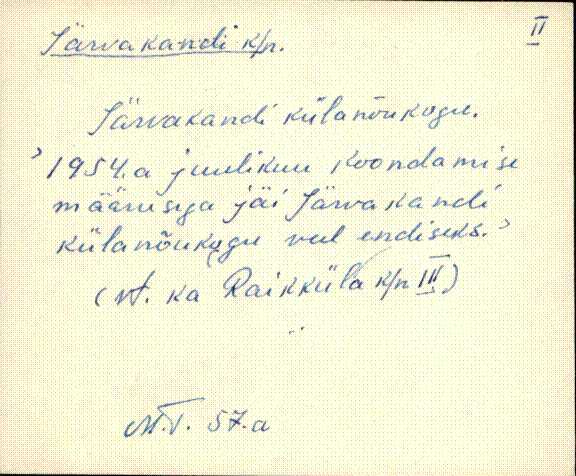 II
Järvakandi k/n.
Järvakandi külanõukogu.
> 1954.a juulikuu koondamise
määrusega jäi Järvakandi
külanõukogu veel endiseks. >
(vt. ka Raikküla k/n III)
M.T. 57.a